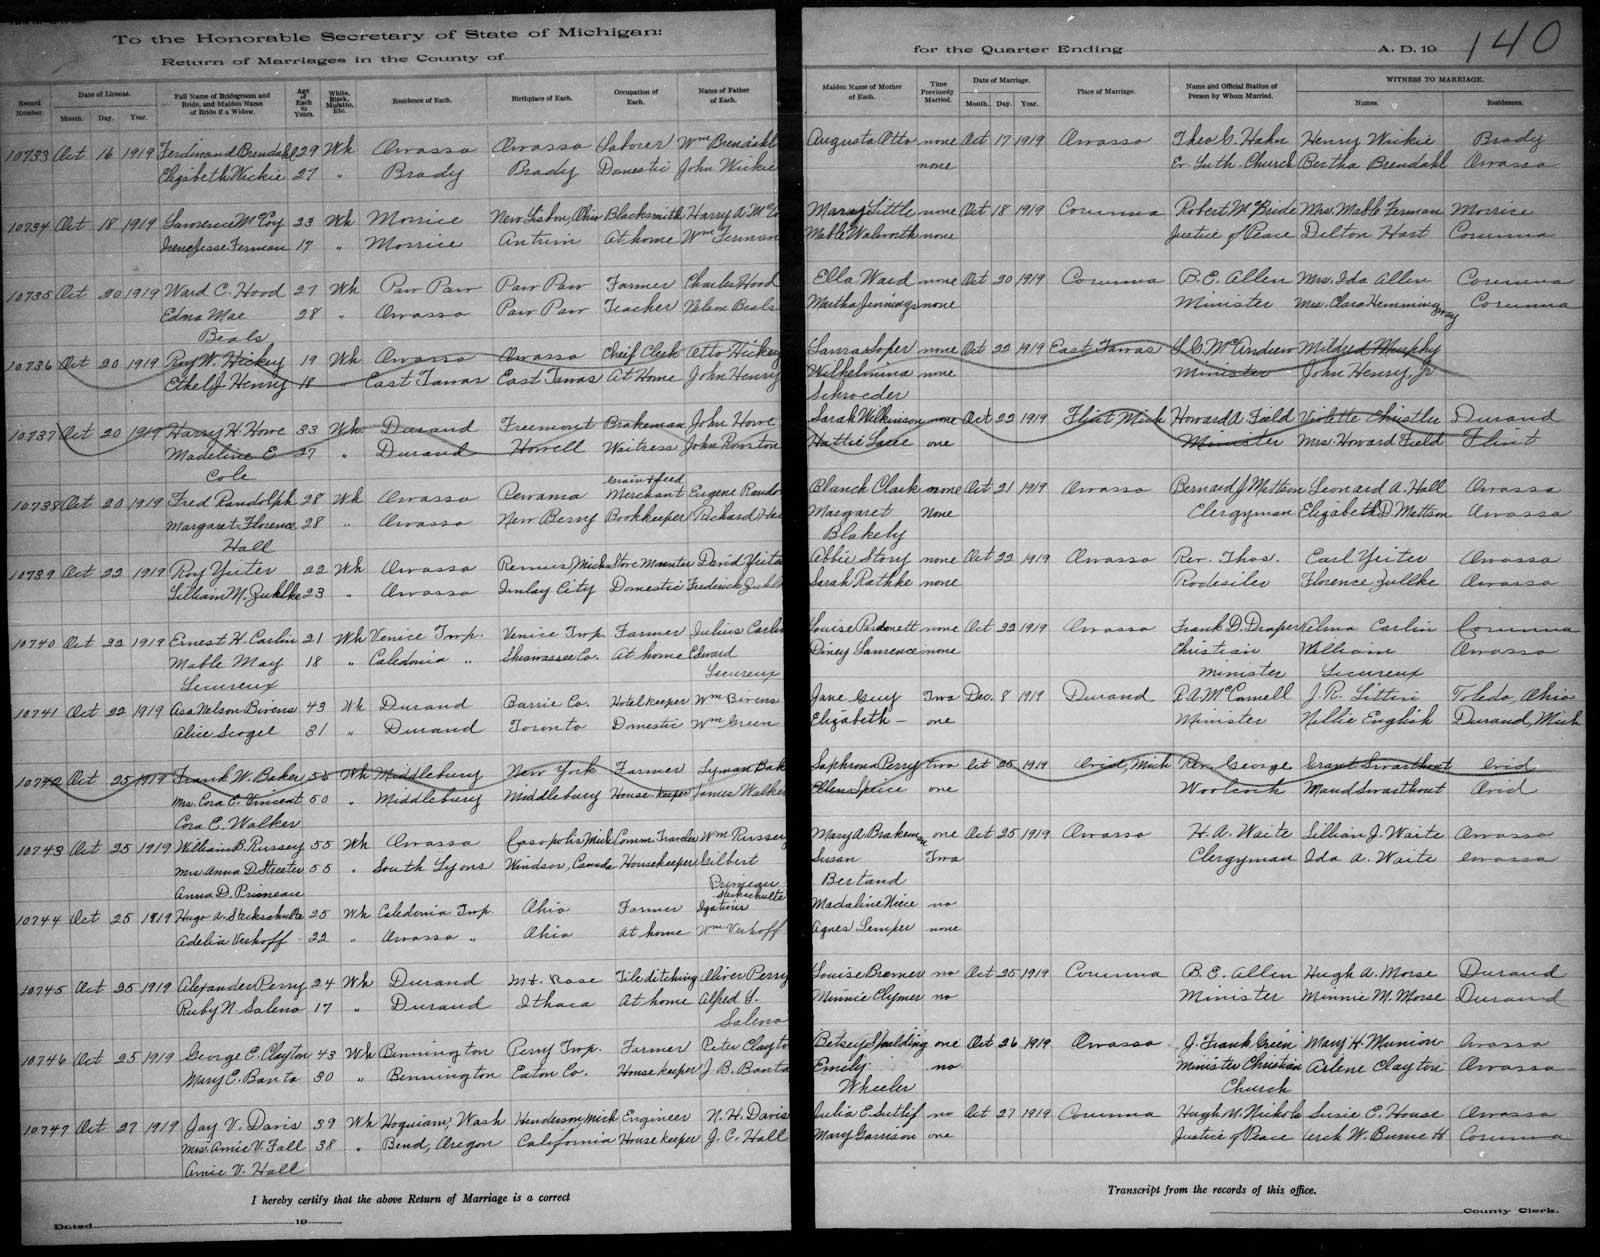 To the Honorable Secretary of State of Michigan:
Return of Marriages in the County of
for the Quarter Ending A. D. 19
140
Record Number.
Date of License.
Month. Day. Year.
Full Name of Bridegroom and Bride, and Maiden Name of Bride if a Widow.
Age of Each in Years.
White, Black, Mulatto, Etc.
Residence of Each.
Birthplace of Each.
Occupation of Each.
Name of Father of Each.
Maiden Name of Mother of Each.
Time Previously Married.
Date of Marriage.
Month. Day. Year.
Place of Marriage.
Name and Official Station of Person by Whom Married.
WITNESS TO MARRIAGE.
Names. Residences.
10733 Oct 16 1919 Ferdinand Brendahl 29 Wh Owosso Owosso Laborer Wm Brendahl Augusta Otto none Oct 17 1919 Owosso Theo C. Hahn Henry Wickie Brady
Elizabeth Wickie 27 " Brady Brady Domestic John Wickie none Ev. Luth. Church Bertha Brendahl Owosso
10734 Oct 18 1919 Lawrence McCoy 23 Wh Morrice New Lisbon, Ohio Blacksmith Harry A McCo Mary Little none Oct 18 1919 Corunna Robert McBride Mrs. Mable Ferman Morrice
Irene Jesse Ferman 17 " Morrice Antrim At home Wm Ferman Mable Walworth none Justice of Peace Delton Hart Corunna
10735 Oct 20 1919 Ward C. Hood 27 Wh Paw Paw Paw Paw Farmer Charles Hood Ella Ward none Oct 20 1919 Corunna B. E. Allen Mrs. Ida Allen Corunna
Edna Mae 28 " Owosso Paw Paw Teacher Nelson Beals Martha Jennings none Minister Mrs. Clara Hemmingway Corunna
Beals
10736 Oct 20 1919 Roy W. Hickey 19 Wh Owosso Owosso Cheif Clerk Otto Hickey Laura Soper none Oct 22 1919 East Tawas S. C. McAndrew Mildred Murphy
Ethel J Henry 18 " East Tawas East Tawas At Home John Henry Wilhelmina none Minister John Henry, Jr
Schroeder
10737 Oct 20 1919 Harry H. Howe 33 Wh. Durand Freemont Brakeman John Howe Sarah Wilkinson none Oct 22 1919 Flint Mich Howard A. Field Violette Christler Durand
Madeline E 27 " Durand Howell Waitress John Hattie one Minister Mrs. Howard Field Flint
Cole
Grain & feed
10738 Oct 20 1919 Fred Randolph 28 Wh Owosso Pewamo Merchant Eugene Rando Blanch Clark none Oct 21 1919 Owosso Bernard J Mattson Leonard A. Hall Owosso
Margaret Florence 28 " Owosso New Berry Bookkeeper Richard Ha Margaret None Clergyman Elizabeth D. Mattson Owosso
Hall Blakely
10739 Oct 22 1919 Roy Yeiter 22 Wh Owosso Remus, Mich David Yeite Abbie Story none Oct 22 1919 Owosso Rev. Thos. Earl Yeiter Owosso
Lillian M. Zuhlke 23 " Owosso Imlay City Domestic Frederick Zuhl Sarah Rathke none Rodesiler Florence Zullke Owosso
10740 Oct 22 1919 Ernest H. Carlin 21 Wh Venice Twp. Venice Twp. Farmer Julius Carlin Louise none Oct 22 1919 Owosso Frank D. Draper Velma Carlin Corunna
Mable May 18 " Caledonia " Shiawassee Co. At home Edward Laurence none Christian William Owosso
Lecureux Lecureux minister Lecureux
10741 Oct 22 1919 Asa Nelson Bivens 43 Wh Durand Barrie Co. Hotelkeeper Wm Bivens Jane Guy Two Dec. 8 1919 Durand R. A. McConnell J. R. Toledo, Ohio
Alice 31 " Durand Toronto Domestic Wm Green Elizabeth — one Minister Nellie English Durand, Mich
10742 Oct 25 1919 Frank W. Baker 55 Wh Middlebury New York Farmer Lyman Bak Saphrona Perry two Oct 25 1919 Ovid, Mich Rev. George Grant Swarthout Ovid
Mrs. Cora E. Vincent 50 " Middlebury Middlebury House keeper James Walker Ellen Spice one Woolcock Maud Swarthout Ovid
Cora E. Walker
10743 Oct 25 1919 William B. Russey 55 Wh Owosso Casopolis Mich Comm. Traveler Wm Russey Mary A. Brakeman one Oct 25 1919 Owosso H. A. Waite Lillian J. Waite Owosso
Mrs Anna D. Streeter 55 " South Lyons Windsor, Canada Housekeeper Gilbert Susan Two Clergyman Ida A. Waite Owosso
Anna D. Primeau Primeau Bertand
10744 Oct 25 1919 Hugo A. Steckschulte 25 Wh Caledonia Twp. Ohio Farmer Steckschulte Igatius Madaline Niece no
Adelia Verhoff 22 " Owosso " Ohio At home Wm Verhoff Agnes Lemper none
10745 Oct 25 1919 Alexander Perry 24 Wh Durand Mt. Rose Tile ditching Oliver Perry Louise Bremer no Oct 25 1919 Corunna B. E. Allen Hugh A. Morse Durand
Ruby N. Saleno 17 " Durand Ithaca At home Alfred Y. Minnie Clymer no Minister Minnie M. Morse Durand
Saleno
10746 Oct 25 1919 George E. Clayton 43 Wh Bennington Perry Twp. Farmer Peter Clayto Betsey Spaulding one Oct 26 1919 Owosso J. Frank Green Mary H. Munion Owosso
Mary E. Banta 30 " Bennington Eaton Co. House keeper J. B. Banta Emily no Minister Christian Arlene Clayton Owosso
Wheeler Church
10747 Oct 27 1919 Jay V. Davis 39 Wh Hoquiam, Wash Henderson, Mich Engineer N. H. Davis Julia E. Sutlif no Oct 27 1919 Corunna Hugh M. Nichols Susie E. House Owosso
Mrs. Amie V. Fall 38 " Bend, Oregon California House keeper J. C. Hall Mary Garrison one Justice of Peace W. Burnett Corunna
Amie V. Hall
I hereby certify that the above Return of Marriage is a correct
Transcript from the records of this office.
Dated 19
County Clerk.